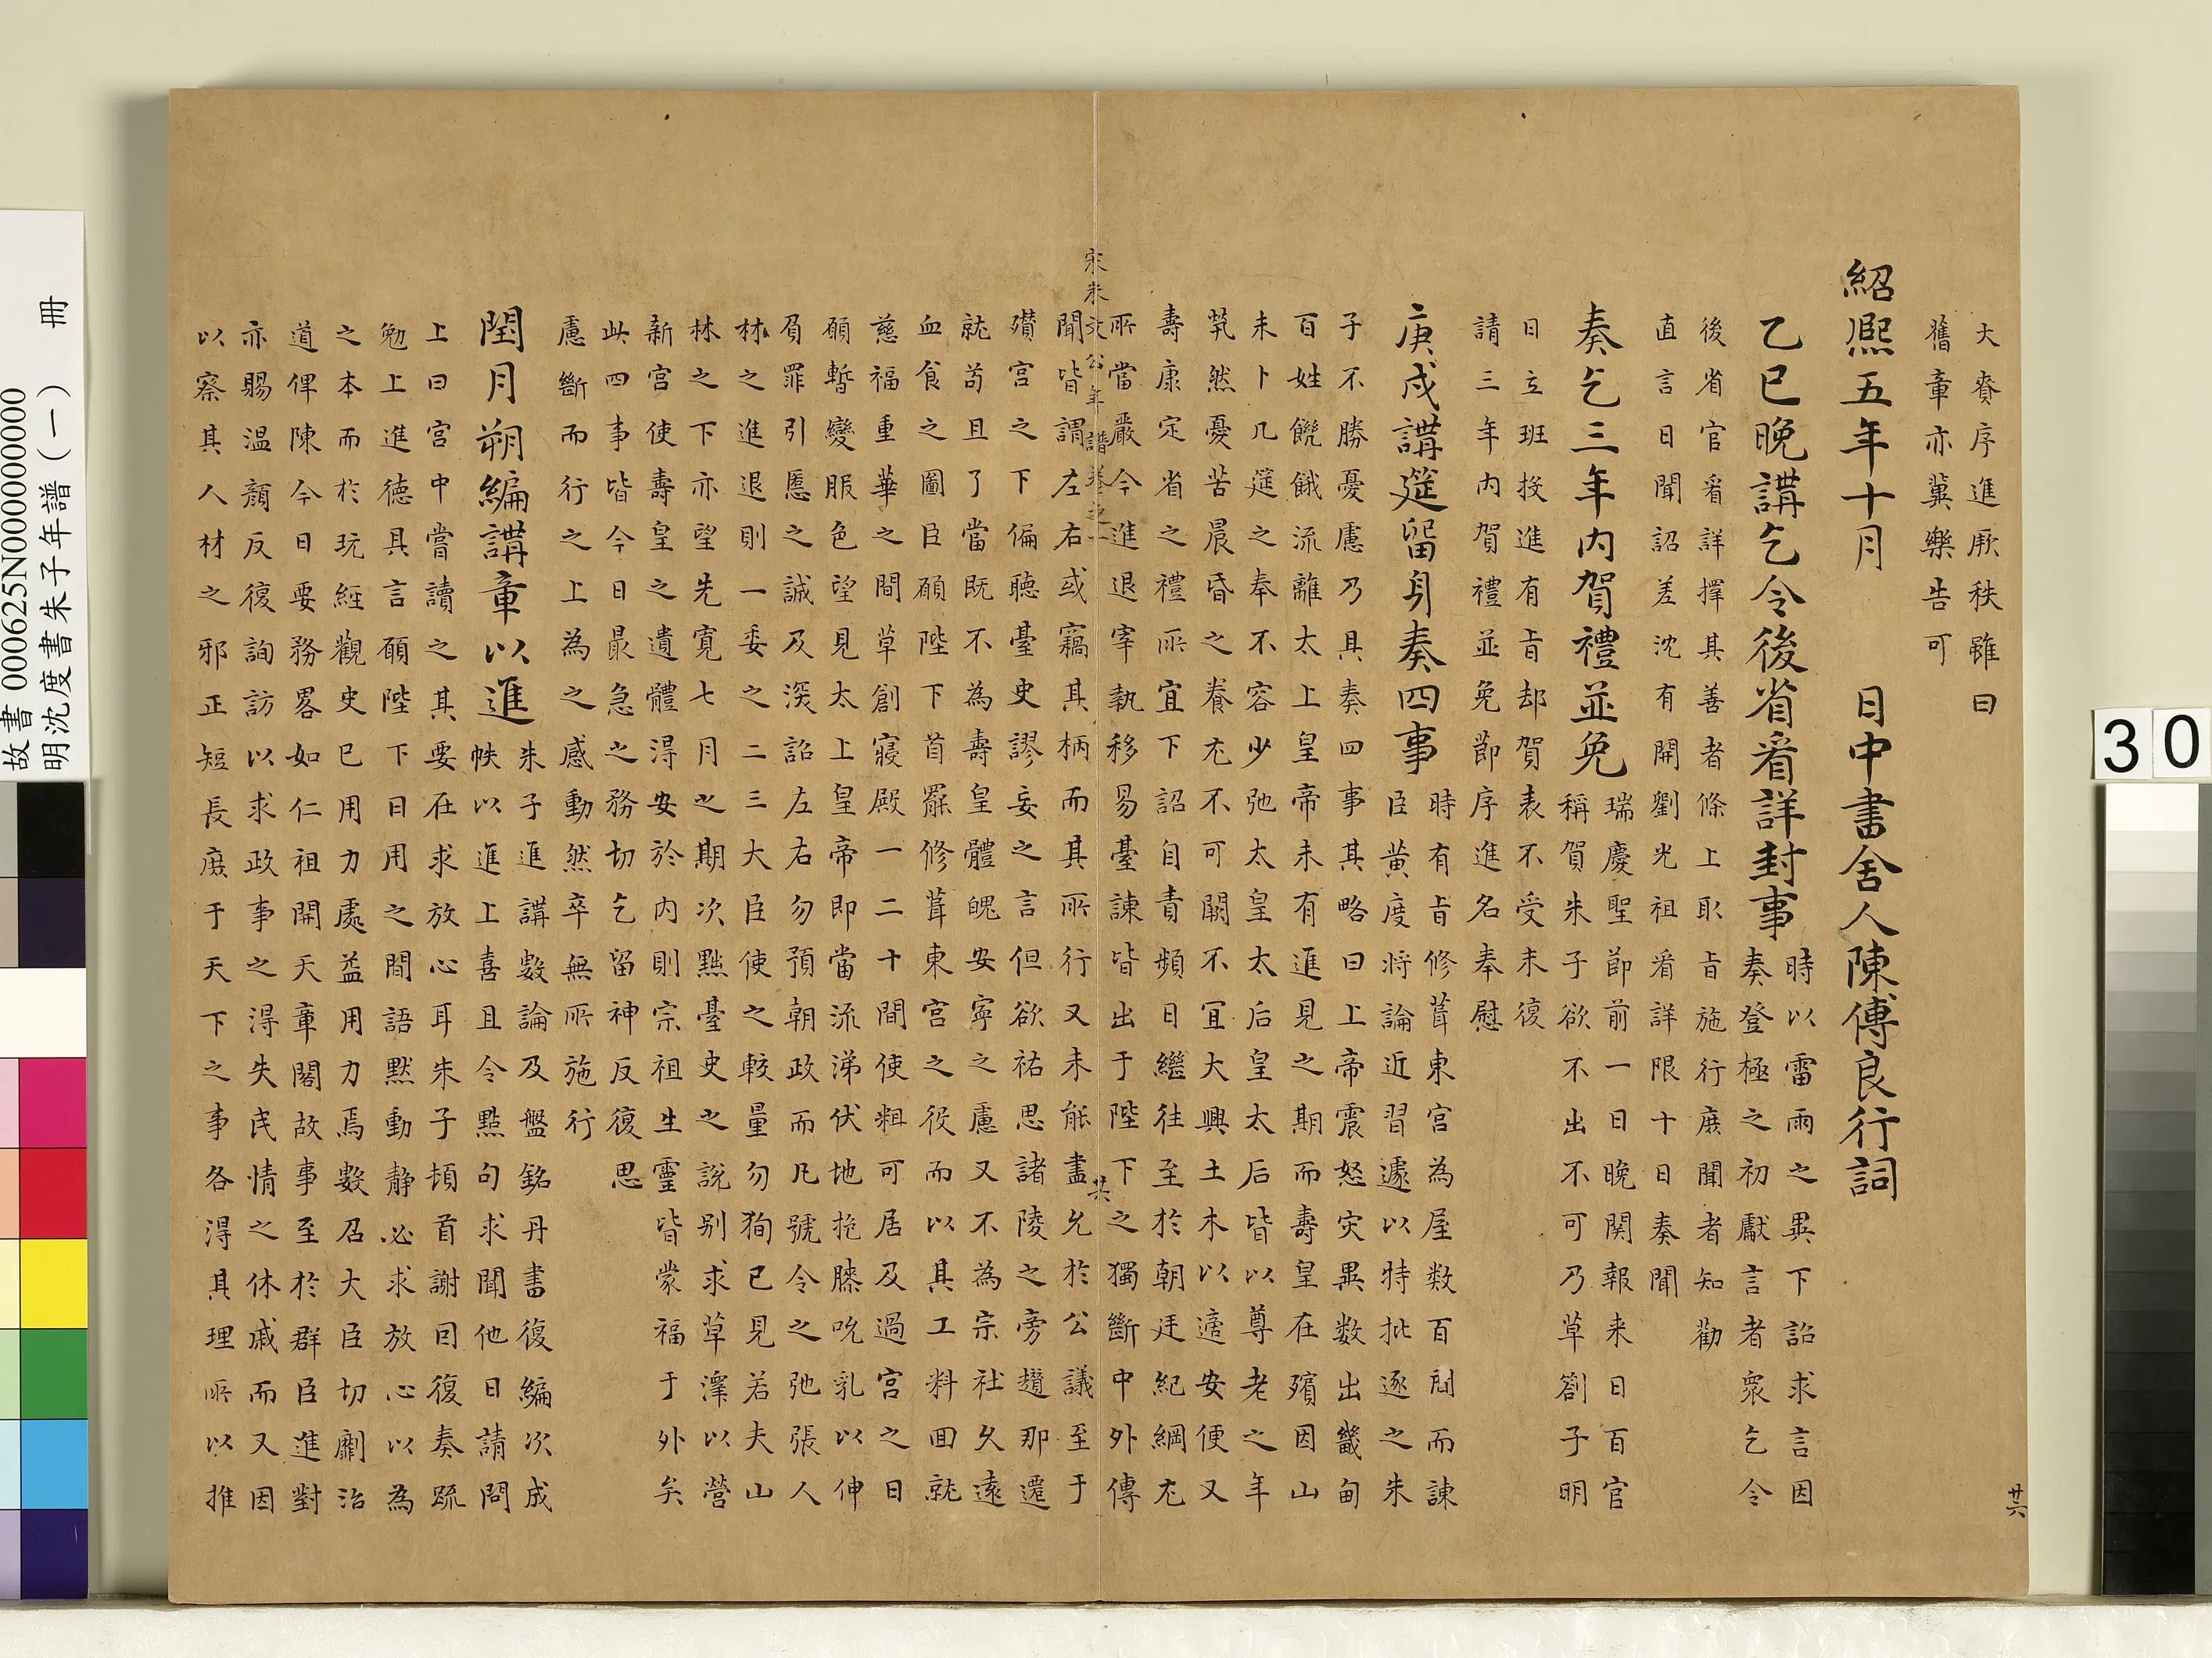 大賚序進厥秩雖曰
舊章亦冀樂告可
紹熈五年十月　日中書舍人陳傅良行詞
乙巳晚講乞令後省看詳封事
時以雷雨之異下詔求言因
奏登極之初獻言者衆乞令
後省官看詳擇其善者條上取旨施行庻聞者知勸
直言日聞詔差沈有開劉光祖看詳限十日奏聞
奏乞三年内賀禮並免
瑞慶聖節前一日晚関報来日百官
稱賀朱子欲不出不可乃草劄子明
日立班投進有旨却賀表不受末復
請三年内賀禮並免節序進名奉慰
庚戌講筵留身奏四事
時有旨修葺東宮為屋数百間而諫
臣黄度将論近習遽以特批逐之朱
子不勝憂慮乃具奏四事其略曰上帝震怒灾異数出畿甸
百姓饑餓流離太上皇帝未有進見之期而壽皇在殯因山
未卜几筵之奉不容少弛太皇太后皇太后皆以尊老之年
煢然憂苦晨昏之養尤不可闕不宜大興土木以適安便又
壽康定省之禮所宜下詔自責頻日繼往至於朝廷紀綱尤
所當嚴今進退宰執移易臺諫皆出于陛下之獨斷中外傳
宋朱文公年譜卷之一
廿六
聞皆謂左右或竊其柄而其所行又未能盡允於公議至于
攢宮之下偏聴臺史謬妄之言但欲祐思諸陵之旁趲那遷
就苟且了當既不為壽皇體魄安寧之慮又不為宗社久遠
血食之圖臣願陛下首罷修葺東宮之役而以其工料囬就
慈福重華之間草創寢殿一二十間使粗可居及過宮之日
願暫變服色望見太上皇帝即當流涕伏地抱膝吮乳以伸
負罪引慝之誠及深詔左右勿預朝政而凡號令之弛張人
材之進退則一委之二三大臣使之較量勿狥已見若夫山
林之下亦望先寛七月之期次黜臺史之說别求草澤以營
新宮使壽皇之遺體得安於内則宗祖生靈皆蒙福于外矣
此四事皆今日最急之務切乞留神反復思
慮斷而行之上為之感動然卒無所施行
閏月朔編講章以進
朱子進講數論及盤銘丹書復編次成
帙以進上喜且令點句求聞他日請問
上曰宮中嘗讀之其要在求放心耳朱子頓首謝因復奏疏
勉上進徳具言願陛下日用之間語黙動静必求放心以為
之本而於玩經觀史已用力處益用力焉數召大臣切劘治
道俾陳今日要務畧如仁祖開天章閣故事至於群臣進對
亦賜温顔反復詢訪以求政事之得失民情之休戚而又因
以察其人材之邪正短長庻于天下之事各得其理所以推
廿六
故書 000625N000000000
明沈度書朱子年譜（一）　冊
30